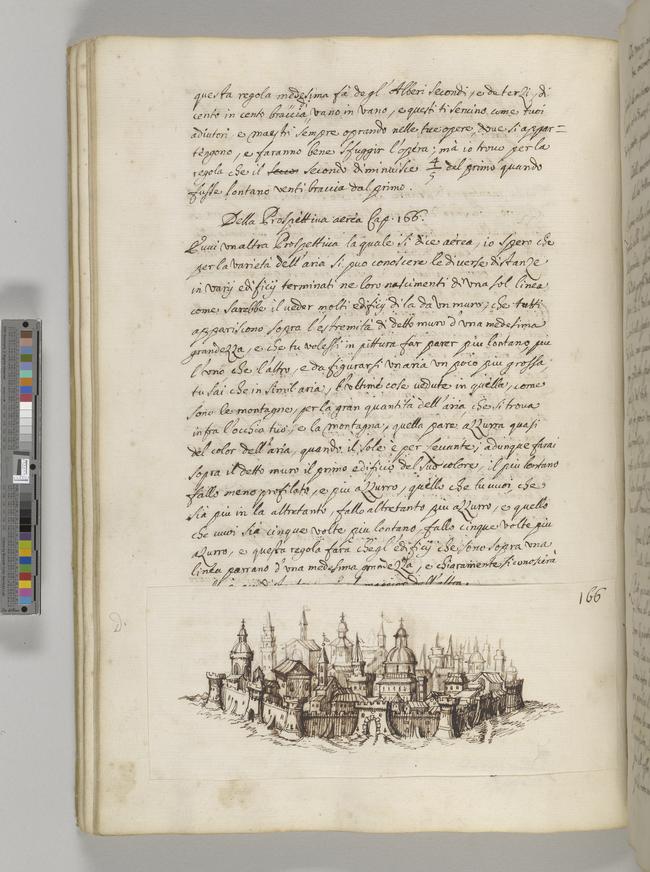 questa regola medesima fà degl' Alberi secondi, e de terzi, di
cento in cento braccia, vano in vano, e questi ti servino come tuoi
adiutori, e maestri sempre oprando nelle tue opere, dove si appar=
tengono, e faranno bene sfuggir l'opera; mà io trovo per la
regola che il secondo diminuisce 4/5 dal primo quando
fusse lontano venti braccia dal primo.
Della Prospettiva aerea Cap. 166.
Evvi un altra Prospettiva la quale si dice aerea, io spero che
per la varietà dell'aria si può conoscere le diverse distanze
in varij edificij terminati ne loro nascimenti da una sol linea
come sarebbe il veder molti edificij di là da un muro, che tutti
appariscono sopra l'estremità di detto muro d'una medesima
grandezza, e che tu volessi in pittura far parer più lontano, più
l'uno che l'altro, e da figurarsi un aria un poco più grossa,
tu sai che in simil aria, l'ultime cose vedute in quella, come
sono le montagne, per la gran quantità dell'aria che si trova
infra l'occhio tuo, e la montagna, quella pare azzurra quasi
del color dell'aria, quando il sole è per levante; adunque farai
sopra il detto muro il primo edificio del suo colore, il più lontano
fallo meno profilato, e più azzurro, quello che tu vuoi che
sia più in là altretanto, fallo altretanto più azzurro, e quello
che vuoi sia cinque volte più lontano, fallo cinque volte più
azurro, e questa regola farà che gl'edificij che sono sopra una
linea parrano d'una medesima grandezza, e chiaramente si conoscerà
maggior dell'altro.
166